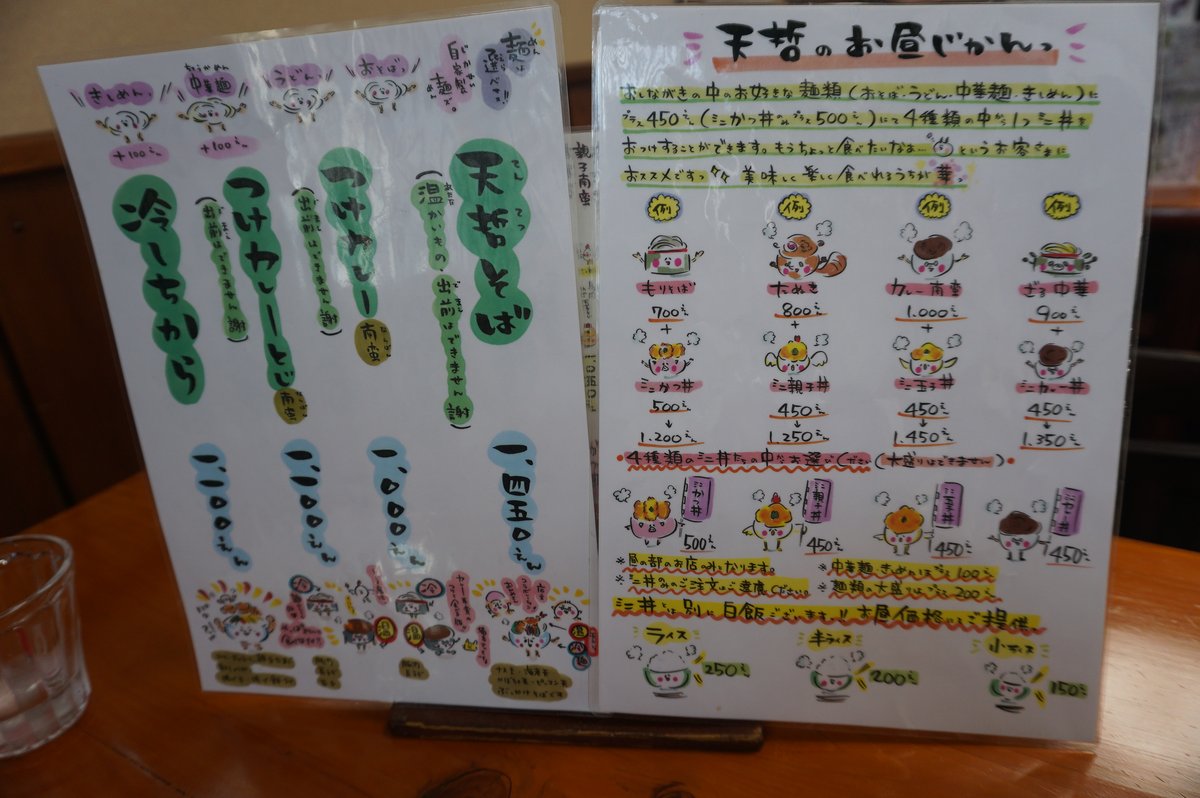 麺は
選べます!!
自家製麺ズ。
おそばっ
うどんっ
中華麺
+100えん
きしめんっ
+100えん
天哲そば
てんてつ
(温かいもの、出前はできません 謝)
一、四五〇えん
つけカレー南蛮
(出前はできません 謝)
一、〇〇〇えん
つけカレーとじ南蛮
(出前はできません 謝)
一、二〇〇えん
冷しちから
一、二〇〇えん
冷
温
温
冷
親子南蛮
天哲のお昼じかんっ
おしながきの中のお好きな麺類(おそば・うどん・中華麺・きしめん)に
プラス450えん(ミニかつ丼のみプラス500えん)にて4種類の中から1つミニ丼を
おつけすることができます。もうちょっと食べたいなぁ…というお客さまに
おススメですっ 美味しく楽しく食べれるうちが華。
例 例 例 例
もりそば たぬき カレー南蛮 ざる中華
700えん 800えん 1.000えん 900えん
+ + + +
ミニかつ丼 ミニ親子丼 ミニ玉子丼 ミニカレー丼
500えん 450えん 450えん 450えん
↓ ↓ ↓ ↓
1.200えん 1.250えん 1.450えん 1.350えん
4種類のミニ丼たちの中からお選びください(大盛りはできません)
ミニかつ丼 ミニ親子丼 ミニ玉子丼 ミニカレー丼
500えん 450えん 450えん 450えん
※昼の部のお店のみとなります。 ※中華麺、きしめんはプラス100えん
※ミニ丼のみのご注文はご遠慮ください。 ※麺類の大盛りはプラス200えん
ミニ丼とは別に白飯ございます!!お昼価格にてご提供
ライス 半ライス 小ライス
250えん 200えん 150えん